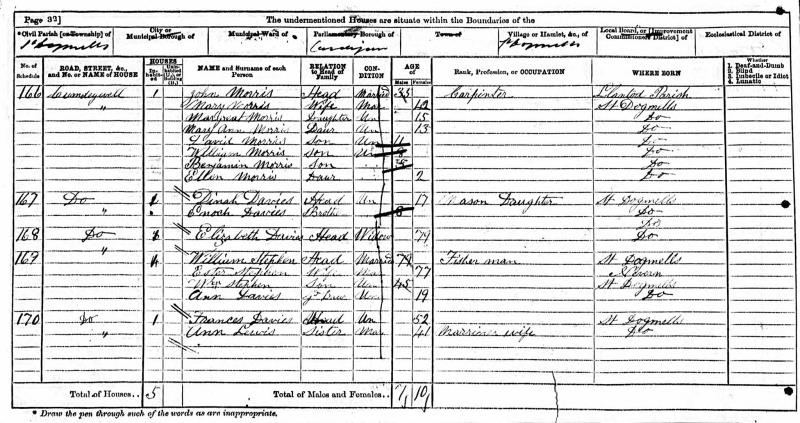 Page 32]
The undermentioned Houses are situate within the Boundaries of the
*Civil Parish [or Township] of
St Dogmells
City or Municipal Borough of
Municipal Ward of
Parliamentary Borough of
Cardigan
Town of
Village or Hamlet, &c., of
St Dogmells
Local Board, or [Improvement Commissioners District] of
Ecclesiastical District of
No. of Schedule
ROAD, STREET, &c., and No. or NAME of HOUSE
HOUSES
NAME and Surname of each Person
RELATION to Head of Family
CONDITION
AGE
Males
Females
Rank, Profession, or OCCUPATION
WHERE BORN
Whether
1. Deaf-and-Dumb
2. Blind
3. Imbecile or Idiot
4. Lunatic
166 1 John Morris Head Married 35 Carpenter Parish
" Mary Morris Wife Mar St Dogmells
Margreat Morris Daughter Un 15 Do
Mary Ann Morris Daur Un 13 Do
David Morris Son Un 11 Do
William Morris Son Un Do
Benjamin Morris Son Do
Ellen Morris Daur 2 Do
167 Do 1 Dinah Davies Head Un 17 Mason Daughter St Dogmells
" Enoch Davies Broth 8 Do
Do
168 Do 1 Elizabeth Davies Head Widow 79 Do
169 " William Stephen Head Married Fisher man St Dogmells
Ester Stephen Wife Mar 77 Nevern
Wm Stephen Son Un 45 St Dogmells
Ann Davies Daur Un 19 Do
170 Do 1 Frances Davies Head Un 52 St Dogmells
" Ann Lewis Sister Mar 41 Marriner wife Do
Total of Houses.. 5 Total of Males and Females.. 7 10
* Draw the pen through such of the words as are inappropriate.